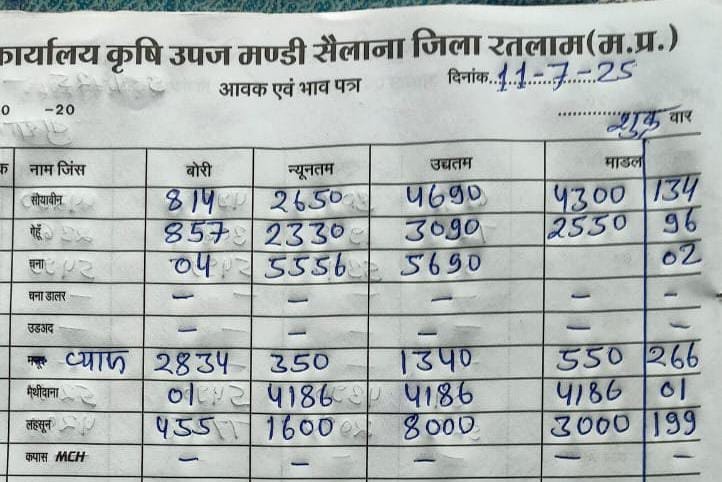 कार्यालय कृषि उपज मण्डी सैलाना जिला रतलाम(म.प्र.)
आवक एवं भाव पत्र दिनांक..11-7-25
0 -20
शुक्र वार
क नाम जिंस बोरी न्यूनतम उच्चतम माडल
सोयाबीन 814 2650 4690 4300 134
गेहूँ 857 2330 3090 2550 96
चना 04 5556 5690 02
चना डालर – – – – –
उडअद – – – – –
प्याज 2834 350 1340 550 266
मैथीदाना 01 4186 4186 4186 01
लहसून 455 1600 8000 3000 199
कपास MCH – – – – –